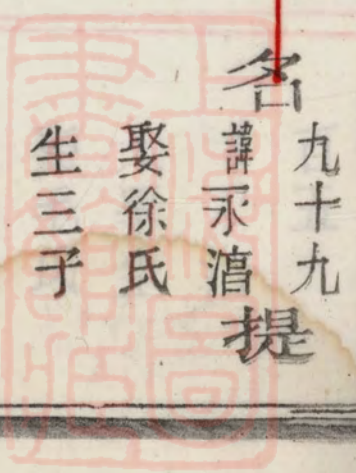 名提
九十九
諱永淐
娶徐氏
生三子